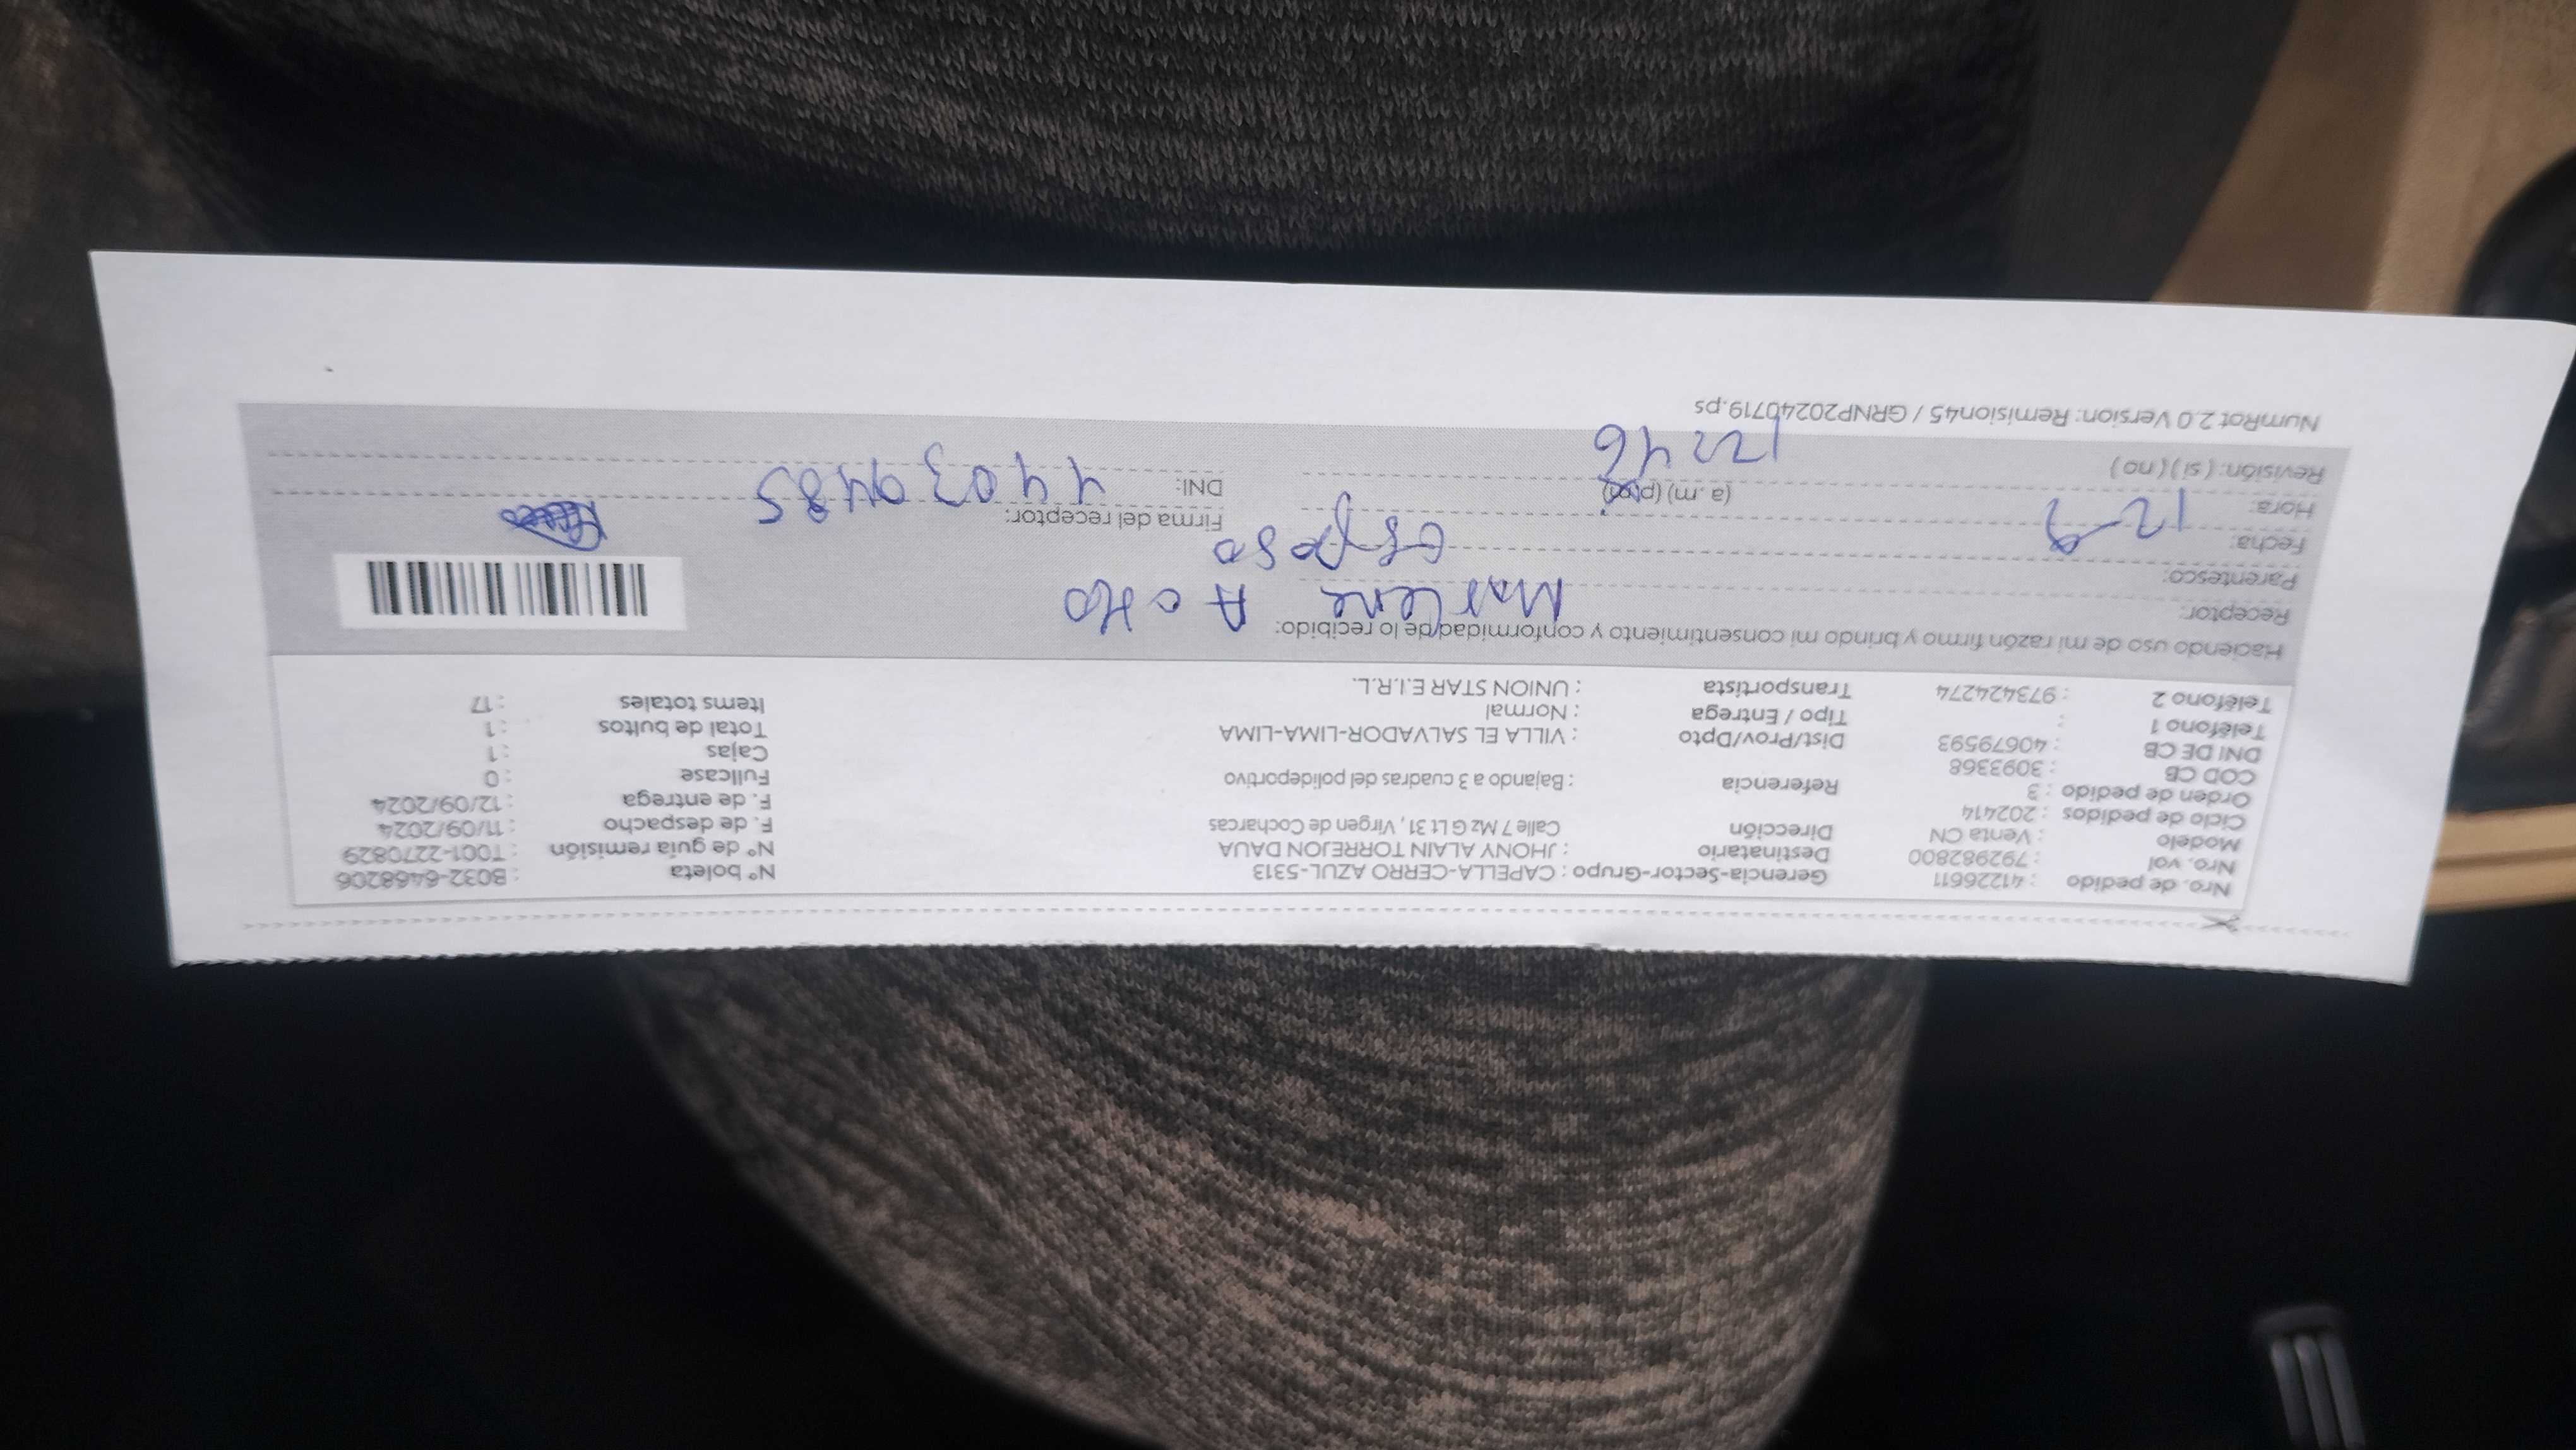 Nro. de pedido : 41226611 Gerencia-Sector-Grupo : CAPELLA-CERRO AZUL-5313 N° boleta : B032-6468206
Nro. vol : 792982800 Destinatario : JHONY ALAIN TORREJON DAUA N° de guía remisión : T001-2270829
Modelo : Venta CN Dirección Calle 7 Mz G Lt 31, Virgen de Cocharcas F. de despacho : 11/09/2024
Ciclo de pedidos : 202414 F. de entrega : 12/09/2024
Orden de pedido : 3 Referencia : Bajando a 3 cuadras del polideportivo Fullcase : 0
COD CB : 3093368 Cajas : 1
DNI DE CB : 40679593 Dist/Prov/Dpto : VILLA EL SALVADOR-LIMA-LIMA Total de bultos : 1
Teléfono 1 : Tipo / Entrega : Normal Items totales : 17
Teléfono 2 : 973424274 Transportista : UNION STAR E.I.R.L.
Haciendo uso de mi razón firmo y brindo mi consentimiento y conformidad de lo recibido:
Receptor: Marlene
Parentesco: esposa
Fecha: 12-9 Firma del receptor:
Hora: 12 46 (a.m) (pm) DNI: 44039485
Revisión: ( si ) ( no )
NumRot 2.0 Version: Remision45 / GRNP20240719.ps